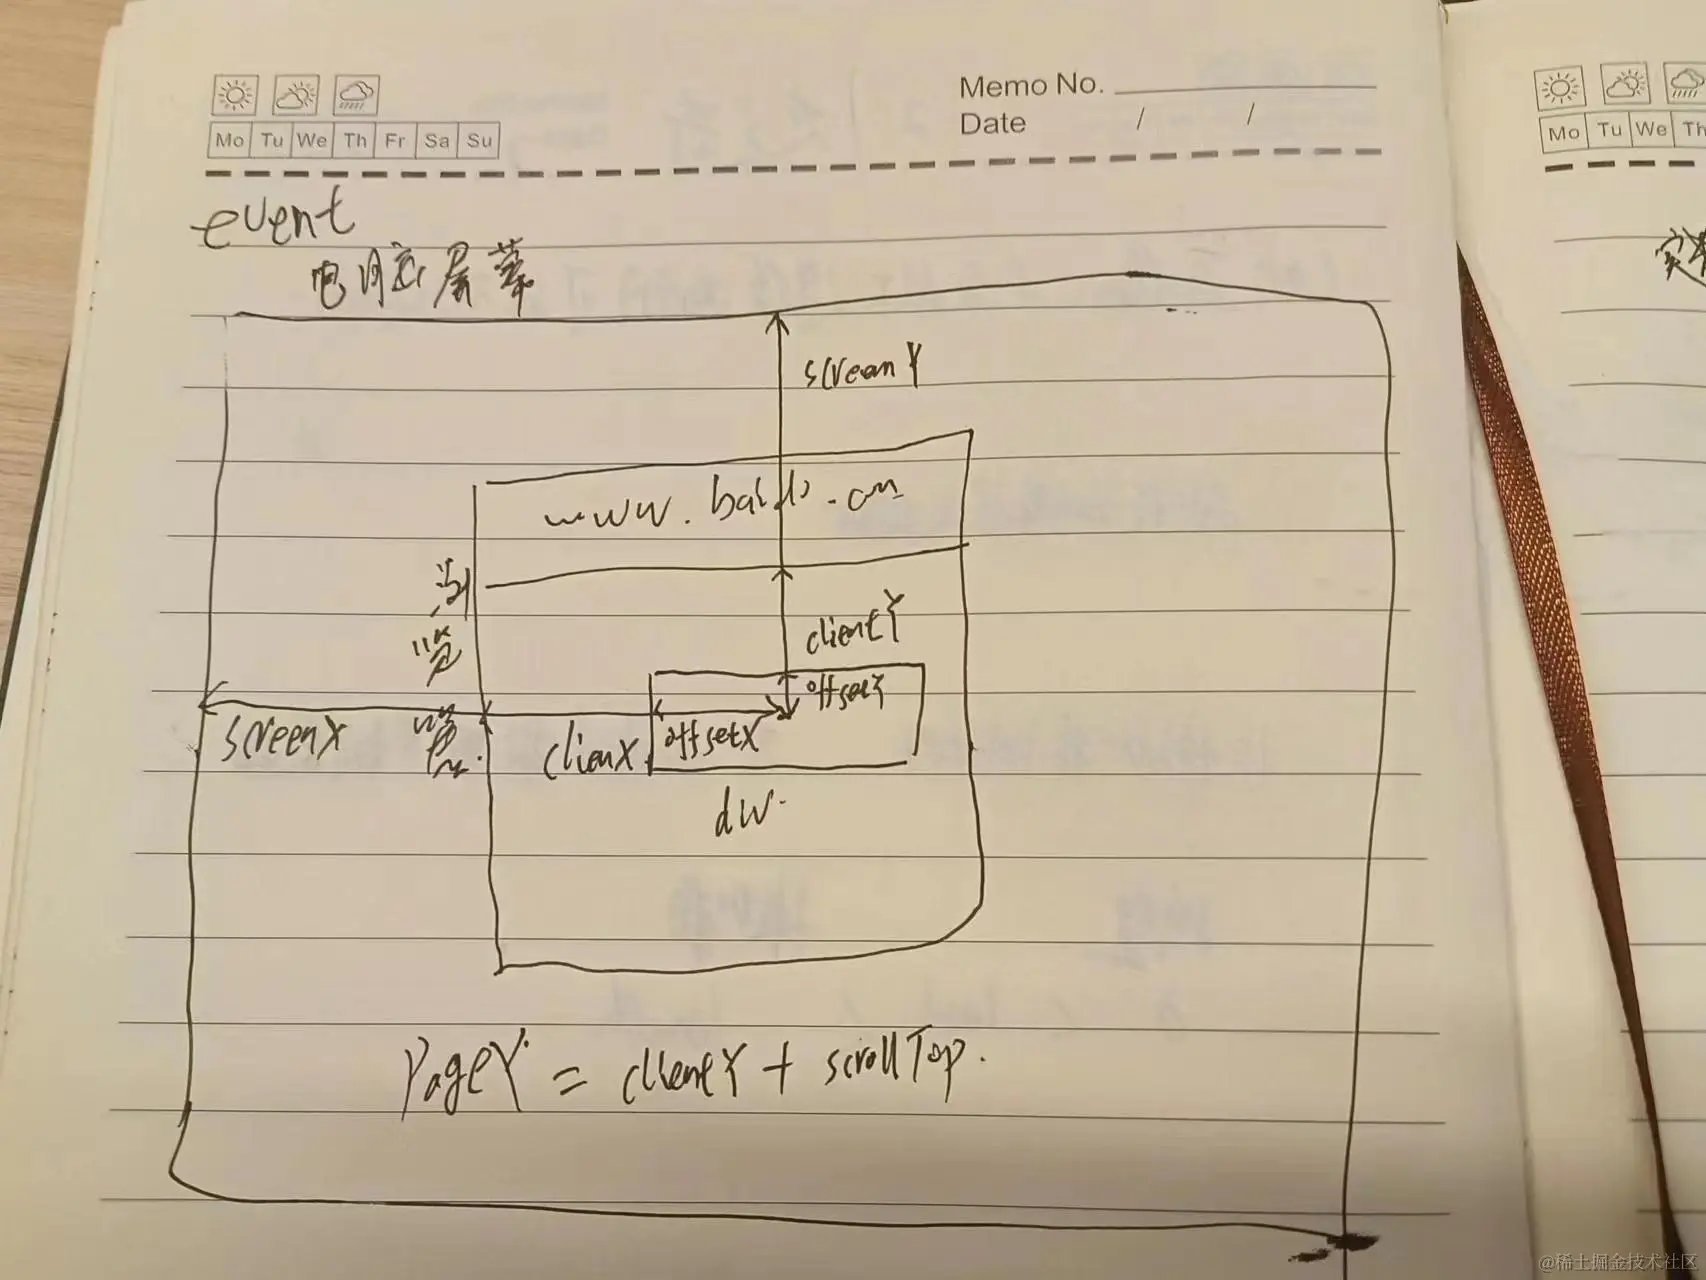 Memo No.
Date / /
Mo Tu We Th Fr Sa Su
Mo Tu We Th
event
电脑屏幕
screenY
www.baidu.com
浏
览
器
clientY
offsetY
screenX
clienX
offsetX
div
PageY = clientY + scrollTop.
@稀土掘金技术社区